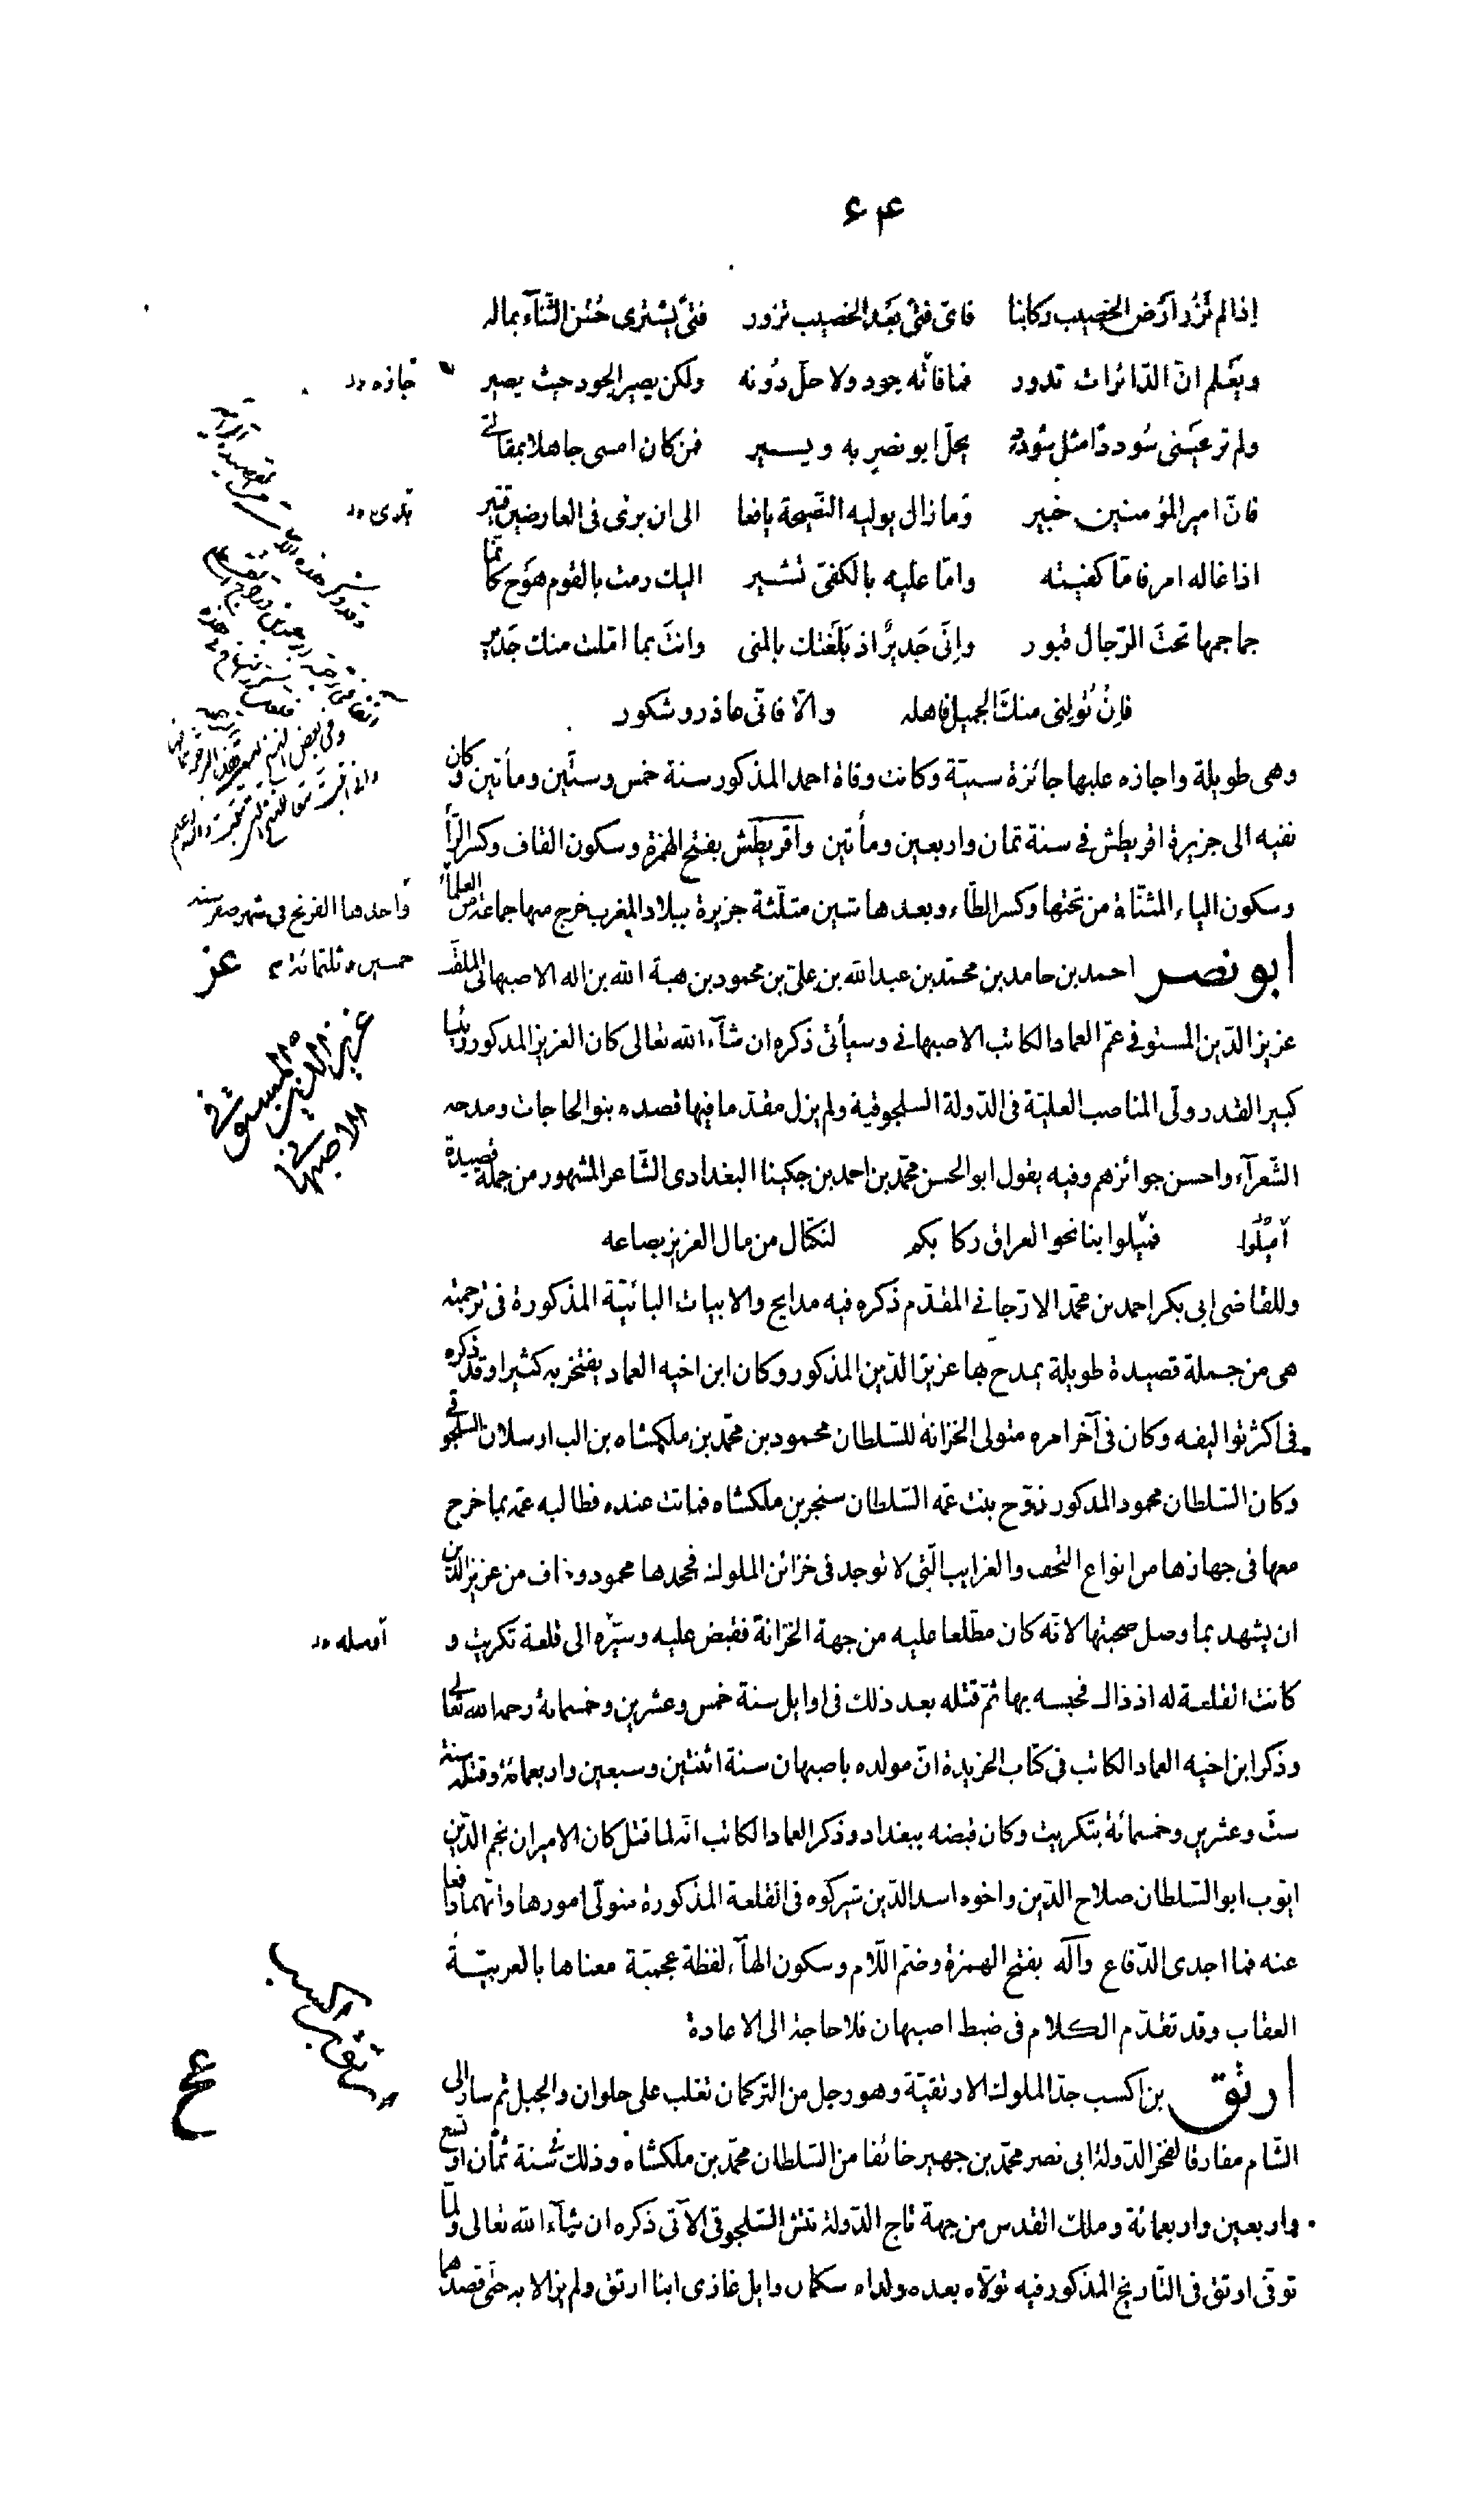 ۶۴
إذا لم تزر أرض الخصيب ركابنا فاى فتى بعد الخصيب تزور فتى يشترى حسن الثناء بماله
ويعلم ان الدّائرات تدور فما فاته جود ولا حلّ دونه ولكن يصير الجود حيث يصير
جازه
ولم تر عينى سوددا مثل سودد يحلّ ابو نصر به ويسير فمن كان امسى جاهلا بمقالتى
فانّ امير المؤمنين خبير وما زال يوليه النّصيحة يافعا الى ان برئى فى العارضين قتير
اذا غاله امر فامّا كفيته وامّا عليه بالكفىّ تشير اليك رمت بالقوم هوج كانّما
جماجمها تحت الرّجال قبور وإنّى جدير اذ بلغتك بالمنى وانت بما امّلت منك جدير
فإن تولنى منك الجميل فاهله والّا فانّى عاذر وشكور
وهى طويلة واجازه عليها جائزة سنيّة وكانت وفاة احمد المذكور سنة خمس وستّين ومأتين وكان
نفيه الى جزيرة اقريطش فى سنة ثمان واربعين ومأتين واقريطش بفتح الهمزة وسكون القاف وكسر الرّاء
وسكون الياء المثنّاة من تحتها وكسر الطّاء وبعدها شين مثلّثة جزيرة ببلاد المغرب خرج منها جماعة من العلماء
واخذها الفرنج فى شهر صفر سنة
خمسين وثلثمائة
ابو نصر احمد بن حامد بن محمّد بن عبد الله بن علىّ بن محمود بن هبة الله بن اله الاصبهانى الملقّب
عزيز الدّين المستوفى عمّ العماد الكاتب الاصبهانى وسيأتى ذكره ان شآء الله تعالى كان العزيز المذكور رئيسا
عزيز الدين المستوفى
الاصبهانى
كبير القدر ولّى المناصب العليّة فى الدّولة السلجوقية ولم يزل مقدّما فيها قصده بنو الحاجات ومدحه
الشّعرآء واحسن جوائزهم وفيه يقول ابو الحسن محمّد بن احمد بن جكينا البغدادى الشّاعر المشهور من جملة قصيدة
اميلوا فميلوا بنا نحو العراق ركابكم لنكتال من مال العزيز بصاعه
وللقاضى ابى بكر احمد بن محمّد الارّجانى المقدّم ذكره فيه مدايح والابيات البائيّة المذكورة فى ترجمته
هى من جملة قصيدة طويلة يمدح بها عزيز الدّين المذكور وكان ابن اخيه العماد يفتخر به كثيرا وقد ذكره
فى اكثر تواليفه وكان فى آخر امره متولى الخزانة للسّلطان محمود بن محمّد بن ملكشاه بن الب ارسلان السلجوقى
وكان السّلطان محمود المذكور زوّج بنت عمّه السّلطان سنجر بن ملكشاه فماتت عنده فطالبه عمّه بما خرج
معها فى جهازها من انواع التحف والغرايب الّتى لا توجد فى خزائن الملوك فجحدها محمود وخاف من عزيز الدّين
ان يشهد بما وصل صحبتها لانّه كان مطّلعا عليه من جهة الخزانة فقبض عليه وسيّره الى قلعة تكريت و
أرسله
كانت القلعة له اذ ذاك فحبسه بها ثمّ قتله بعد ذلك فى اوايل سنة خمس وعشرين وخمسمائة رحمه الله تعالى
وذكر ابن اخيه العماد الكاتب فى كتاب الخريدة انّ مولده باصبهان سنة اثنتين وسبعين واربعمائة وقتله سنة
ستّ وعشرين وخمسمائة بتكريت وكان قبضه ببغداد وذكر العماد الكاتب انّه لما قتل كان الاميران نجم الدّين
ايّوب ابو السّلطان صلاح الدّين واخوه اسد الدّين شيركوه فى القلعة المذكورة متولّى امورها وانهما دافعا
عنه فما اجدى الدّفاع وآله بفتح الهمزة وضمّ اللّام وسكون الهآء لفظة عجميّة معناها بالعربيّة
العقاب وقد تقدّم الكلام فى ضبط اصبهان فلا حاجة الى الاعادة
ارتق بن اكسب جدّ الملوك الارتقيّة وهو رجل من التركمان تغلب على حلوان والجبل ثم سار الى
ارتق بن اكسب
الشّام مفارقا لفخر الدّولة ابى نصر محمّد بن جهير خائفا من السّلطان محمّد بن ملكشاه وذلك فى سنة ثمان او تسع
واربعين واربعمائة وملك القدس من جهة تاج الدّولة تتش السّلجوقى الآتى ذكره ان شآء الله تعالى ولمّا
توفّى ارتق فى التّاريخ المذكور فيه تولّاه بعده ولداه سكمان وايل غازى ابنا ارتق ولم يزالا به حتّى قصدهما